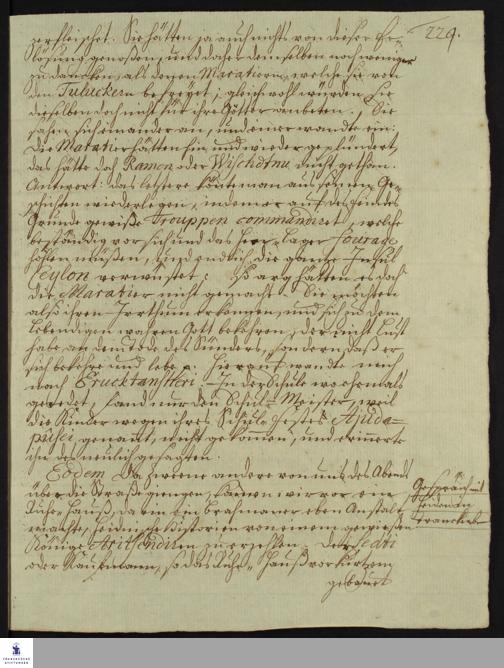 229.
zerfleischet. Sie hätten ja auch nichts von dieser Er-
lösung genoßen, und daher demselben noch weniger
zu dancken, als denen Maratiern, welche sie von
den Tuluckern befreyet; gleichwohl würden sie
dieselben doch nicht für ihre Götter anbeten. Sie
sahen sich einander an, und einer wandte ein:
die Maratier hätten hin und wieder geplündert,
das hätte doch Ramen oder Wischdtnu nicht gethan.
Antwort: das letztere könte man aus seinen Ge-
schichten wiederlegen, indem er auf des Feindes
Grunde gewiße Trouppen commandiret, welche
beständig vor sich und das Heer-Lager Fourage
holen müßen, und endlich die gantze Insul
Ceylon verwüstet: So arg hätten es doch
die Maratier nicht gemacht. Sie möchten
also ihren Irrthum erkennen, und sich zu dem
lebendigen wahren Gott bekehren, der nicht Lust
habe an dem Tode des Sünders, sondern daß er
sich bekehre und lebe p. Hierauf wandte mich
nach Erucktanseri. In der Schule wo ehemals
geredet, fand nur den Schul-Meister, weil
die Kinder wegen ihres Schul-Festes Ajuda-
pusei genant, nicht gekommen, und erinnerte
ihn des neulich gesagten.
Eodem Da zweene andere von uns des Abends
über die Straße giengen, kamen wir vor ein
Ruhe-Hauß, da eben ein Brahmaner eben Anstalt
machte, heidnische Historien von einem gewißen
Könige Aritschandiren zu erzehlen. Der Sedti
oder Kaufmann, so das Ruhe-Hauß vor kurtzem
gebauet
Gespräch mit
Heiden in
Franckenb.
FRANCKESCHE
STIFTUNGEN